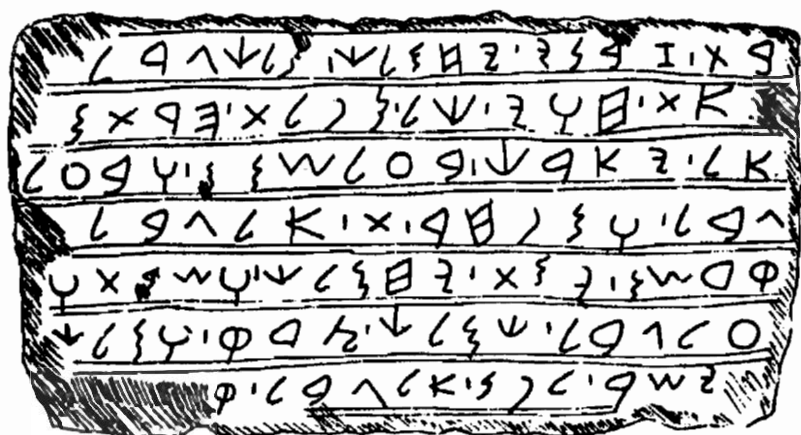 𐤁𐤕𐤟𐤆𐤁𐤍𐤉𐤟𐤉𐤇𐤌𐤋𐤊𐤟𐤌𐤋𐤊𐤂𐤁𐤋
𐤀𐤕𐤟𐤇𐤅𐤉𐤟𐤊𐤋𐤟𐤌𐤐𐤋𐤕𐤟𐤄𐤁𐤕𐤌
𐤀𐤋𐤟𐤉𐤀𐤓𐤊𐤟𐤁𐤏𐤋𐤔𐤌𐤌𐤟𐤅𐤁𐤏𐤋
𐤂𐤁𐤋𐤟𐤅𐤌𐤐𐤇𐤓𐤟𐤕𐤟𐤀𐤋𐤂𐤁𐤋
𐤒𐤃𐤔𐤌𐤟𐤉𐤌𐤕𐤟𐤉𐤇𐤌𐤋𐤊𐤟𐤅𐤔𐤍𐤕𐤅
𐤏𐤋𐤂𐤁𐤋𐤟𐤊𐤌𐤋𐤊𐤟𐤑𐤃𐤒𐤟𐤅𐤌𐤋𐤊
𐤉𐤔𐤓𐤟𐤋𐤐𐤍𐤟𐤀𐤋𐤂𐤁𐤋𐤟𐤒